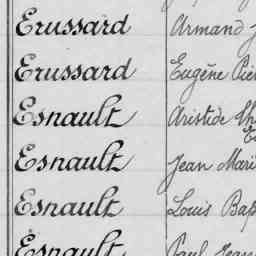 Erussard Armand
Erussard Eugène
Esnault Aristide
Esnault Jean Mari
Esnault Louis Bap
Esnault Paul Jean